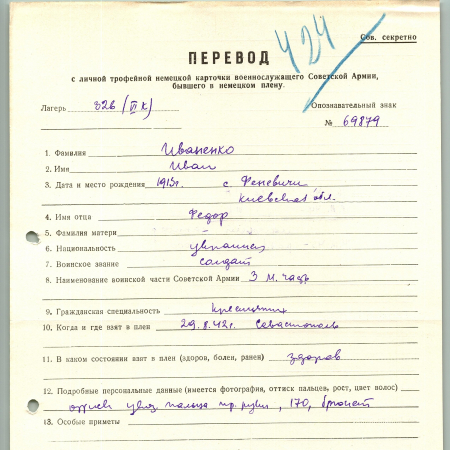 424
Сов. секретно
ПЕРЕВОД
с личной трофейной немецкой карточки военнослужащего Советской Армии,
бывшего в немецком плену.
Лагерь 326 (VI К) Опознавательный знак
№ 69879
1. Фамилия Иваненко
2. Имя Иван
3. Дата и место рождения 1913г. с. Феневичи
Киевская обл.
4. Имя отца Федор
5. Фамилия матери
6. Национальность украинец
7. Воинское звание солдат
8. Наименование воинской части Советской Армии 3 м. часть
9. Гражданская специальность крестьянин
10. Когда и где взят в плен 29.8.42г. Севастополь
11. В каком состоянии взят в плен (здоров, болен, ранен) здоров
12. Подробные персональные данные (имеется фотография, оттиск пальцев, рост, цвет волос)
оттиск указ. пальца пр. руки, 170, брюнет
13. Особые приметы